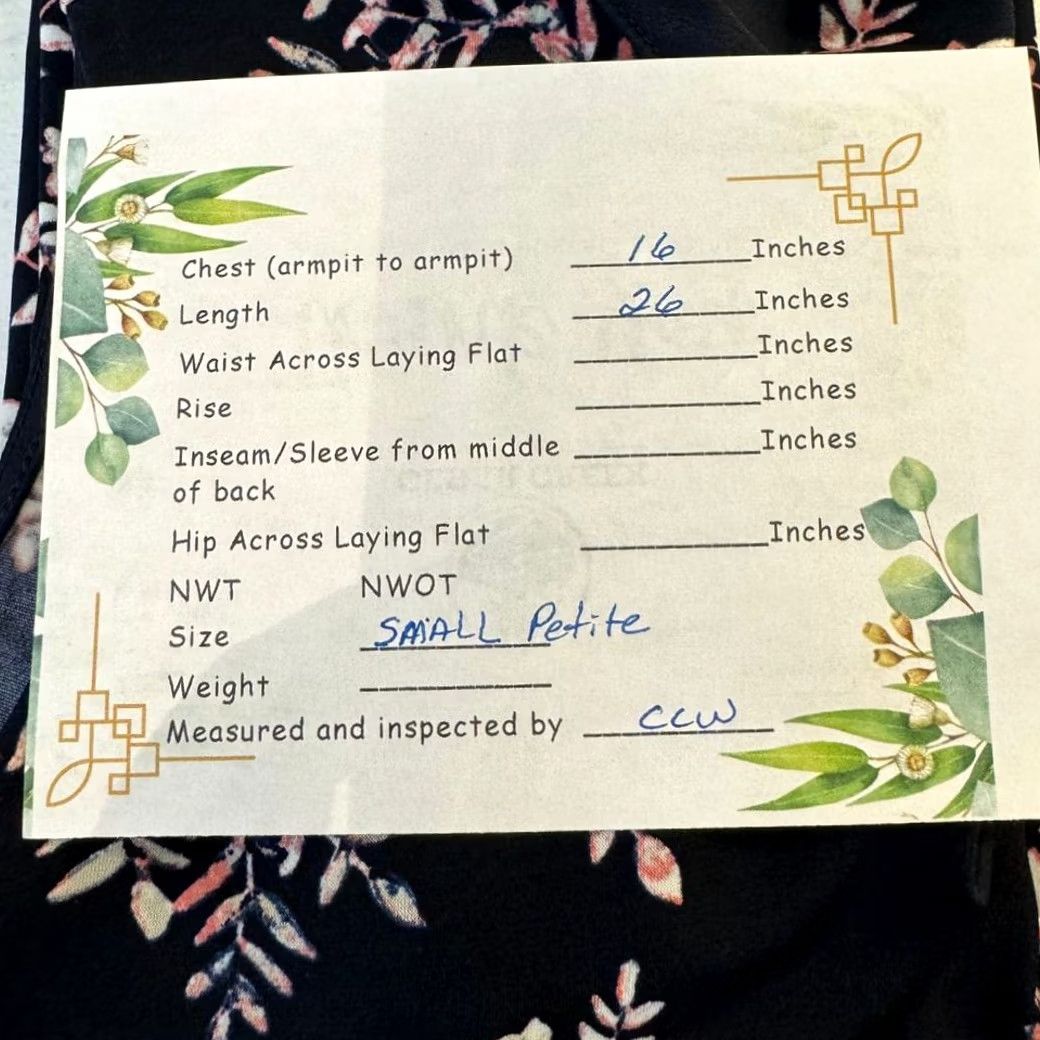 Chest (armpit to armpit) 16 Inches
Length 26 Inches
Waist Across Laying Flat ______ Inches
Rise ______ Inches
Inseam/Sleeve from middle ______ Inches
of back
Hip Across Laying Flat ______ Inches
NWT NWOT
Size SMALL Petite
Weight ______
Measured and inspected by CCW